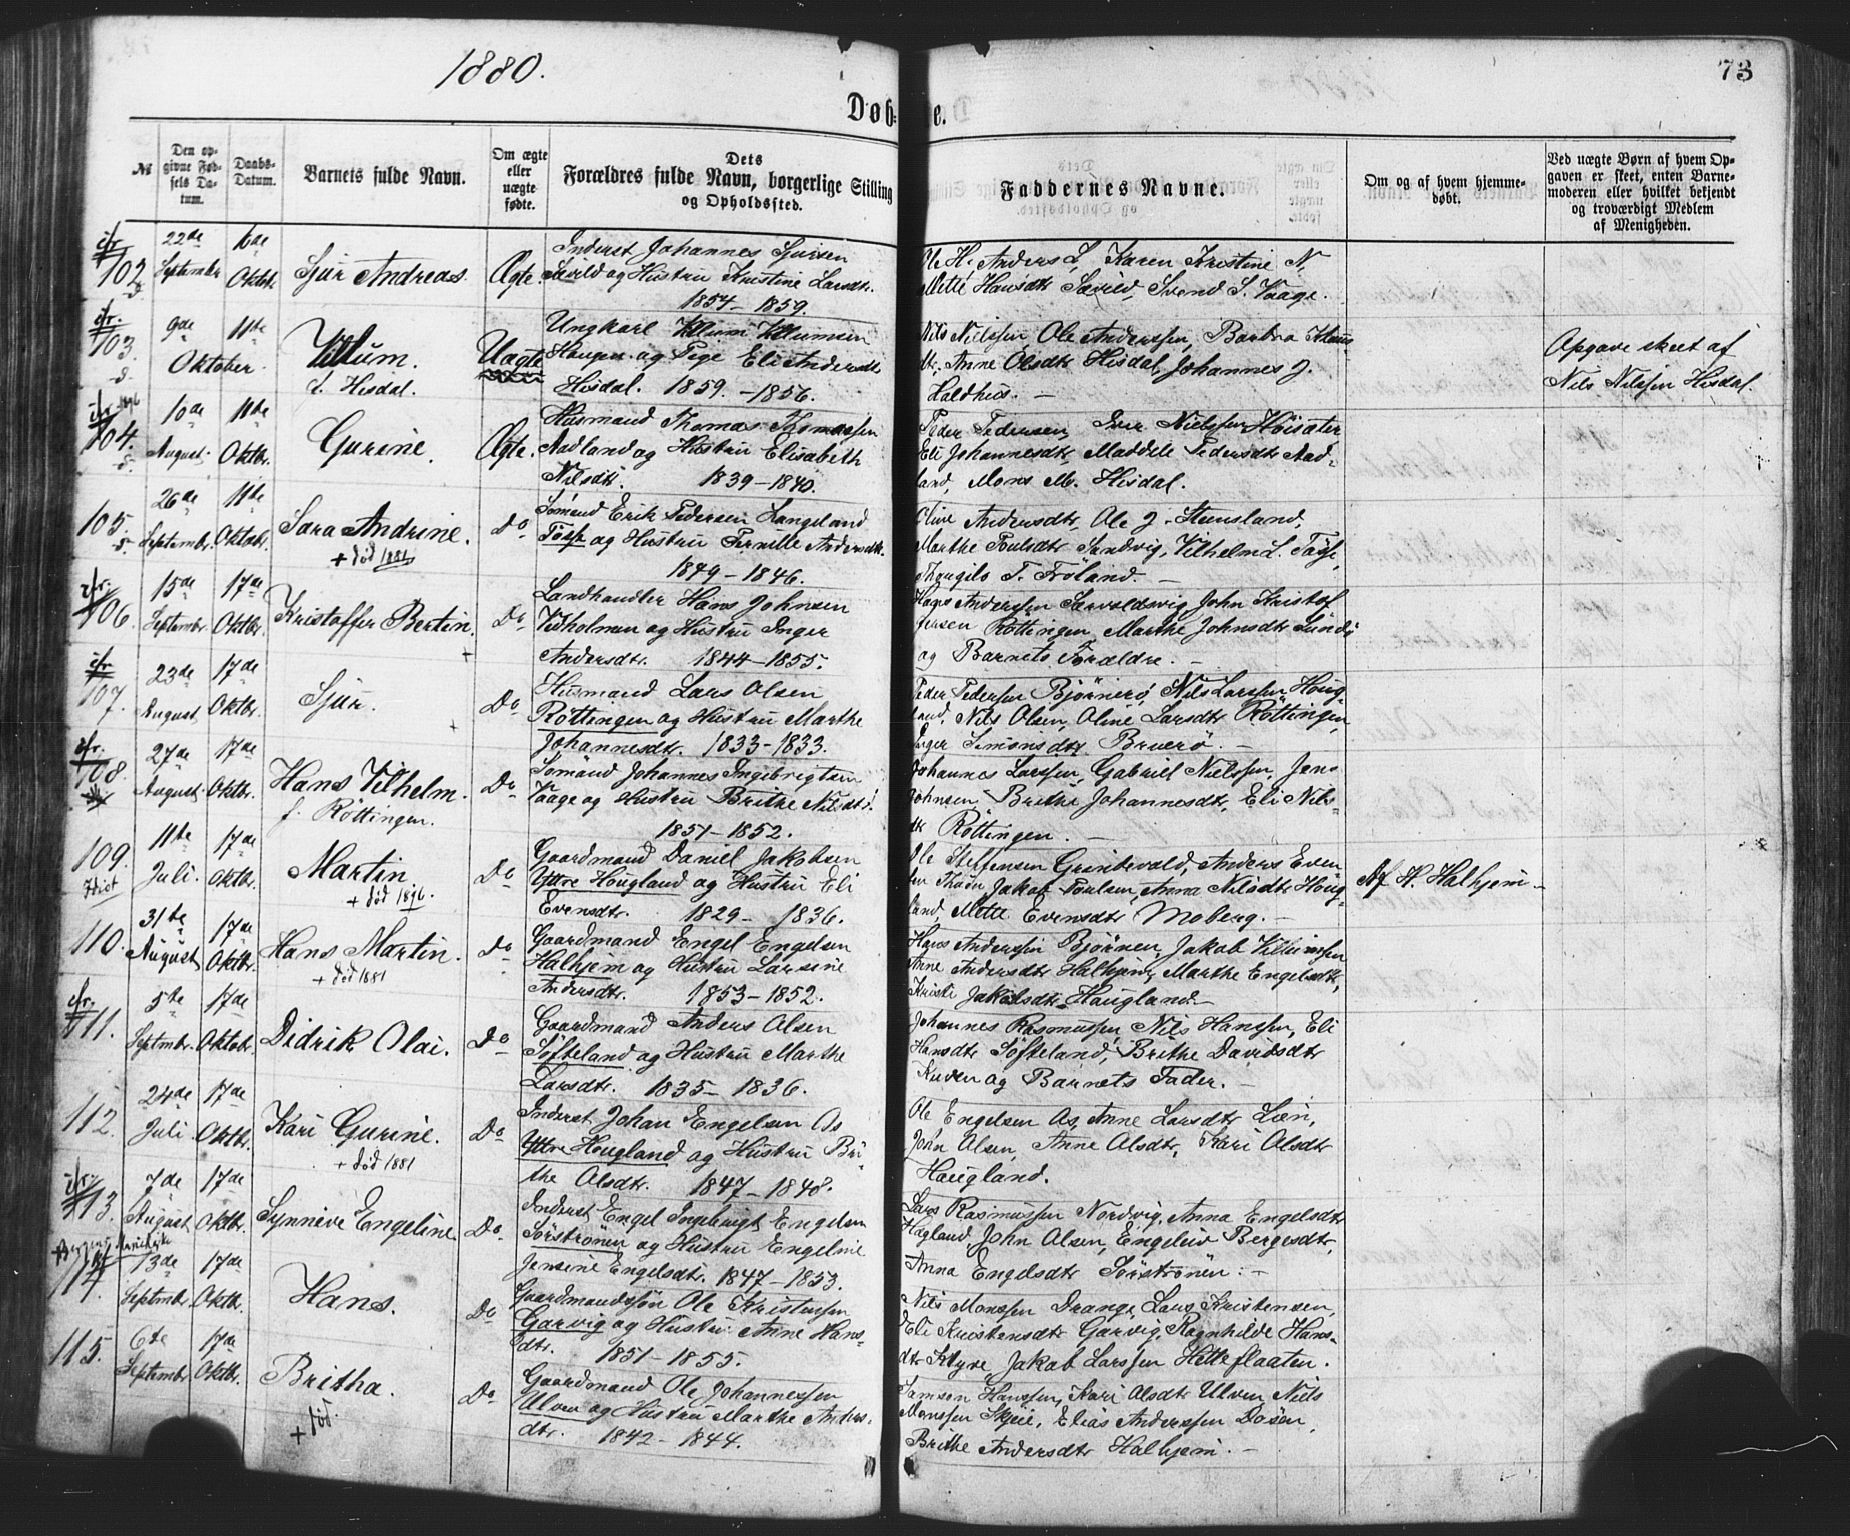 1880.
73
Døb=
e.
№
Den op-
givne Fød-
sels Da-
tum.
Daabs-
Datum.
Barnets fulde Navn.
Om ægte
eller
uægte
fødte.
Dets
Forældres fulde Navn, borgerlige Stilling
og Opholdssted.
Faddernes Navne.
Om og af hvem hjemme-
døbt.
Ved uægte Børn af hvem Op-
gaven er skeet, enten Barne-
moderen eller hvilket bekjendt
og troværdigt Medlem
af Menigheden.
102. 22de Septembr 10de Oktbr. Sjur Andreas. Ægte.
Inderst Johannes Sjursen
Sævild og Hustru Kristine Larsdtr.
1854 - 1859.
Ole H. Anders L, Karen Kristine N,
Mette Hansdtr Sævild, Svend S. Vaage.
103. 9de Oktober 11te Villum. Uægte
f. Hisdal.
Ungkarl Villum Villumsen
Haugen og Pige Eli Andersdtr
Hisdal. 1859. - 1856.
Nils Nielssen, Ole Anderssen, Barbra Klaus-
dtr. Anne Olsdtr Hisdal, Johannes J.
Haldhus. -
Opgave skeet af
Nils Nilssen Hisdal.
104. 10de August 11te Oktbr. Gurine. Ægte.
Husmand Thomas Thomassen
Aadland og Hustru Elisabeth
Nilsdtr. 1839 - 1840.
Peder Pedersen, Iver Nielssen Høisæter
Eli Johannesdtr, Maddele Pedersdtr Aad-
land, Mons M. Hisdal.
105. 26de Septembr. 11te Oktbr. Sara Andrine. Do
+ død 1881
Sømand Erik Pedersen Langeland
Tøsse og Hustru Pernille Andersdtr.
1849 - 1846.
Oline Andersdtr, Ole J. Steensland,
Marthe Poulsdtr Sandvig, Vilhelm L. Tøsse,
Thougils T. Frøland. -
106. 15de Septembr. 17de Oktbr. Kristoffer Bertin. Do
Landhandler Hans Johnsen
Vedholmen og Hustru Inger
Andersdtr. 1844 - 1855.
Hans Anderssen Sævoldsvig, John Kristof
Jensen Røttingen, Marthe Johnsdtr Sundø
og Barnets Forældre. -
107. 23de August 17de Oktbr. Sjur. Do
Husmand Lars Olsen
Røttingen og Hustru Marthe
Johannesdtr. 1833 - 1833.
Peder Pedersen Bjørnerø, Nils Larssen Houg-
land, Nils Olsen, Oline Larsdtr Røttingen,
Inger Simonsdtr Bruerø. -
108. 27de August 17de Oktbr. Hans Vilhelm. Do
f. Røttingen.
Sømand Johannes Ingebrigtsen
Vaage og Hustru Brithe Nilsdtr.
1851 - 1852.
Johannes Larssen, Gabriel Nielssen, Jens
Johnsen, Brithe Johannesdtr, Eli Nils-
dtr Røttingen. -
109. 11te Juli. 17de Oktbr. Martin Do
+ død 1896.
Gaardmand Daniel Jakobsen
Yttre Hougland og Hustru Eli
Evensdtr. 1829 - 1836.
Ole Steffensen Grindevold, Anders Even
sen Thuen, Jakob Poulsen, Anna Nilsdtr Houg-
land, Mette Evensdtr Moberg. -
Af H. Halhjem -
110. 31te August 17de Oktbr. Hans Martin. Do
+ død 1881
Gaardmand Engel Engelsen
Halhjem og Hustru Larsine
Andersdtr. 1853 - 1852.
Hans Anderssen Bjørnen, Jakob Villumssen
Anne Andersdtr Halhjem, Marthe Engelsdtr,
Kristi Jakobsdtr Haugland. -
111. 5te Septmbr. 17de Oktobr. Didrik Olai. Do
Gaardmand Anders Olsen
Søfteland og Hustru Marthe
Larsdtr. 1835 - 1836.
Johannes Rasmussen, Nils Hanssen, Eli
Hansdtr Søfteland, Brithe Davidsdtr
Kuven og Barnets Fader. -
112. 24de Juli 17de Oktbr. Kari Gurine. Do
+ død 1881
Inderst Johan Engelsen Os
Yttre Hougland og Hustru Bri-
the Olsdtr. 1847 - 1848.
Ole Engelsen Os, Anne Larsdtr Lien,
John Olsen, Anne Olsdtr, Kari Olsdtr
Haugland.
113. 7de August 17de Oktbr. Synneve Engeline. Do.
Inderst Engel Ingebrigt Engelsen
Sørstrønen og Hustru Engeline
Jensine Engelsdtr. 1847 - 1853.
Lars Rasmussen Nordvig, Anna Engelsdtr
Hagland, John Olsen, Engelev Bergesdtr,
Anna Engelsdtr Sørstrønen. -
114. 13de Septmbr. 17de Oktbr. Hans. Do
Gaardmandssøn Ole Kristensen
Garvig og Hustru Anne Hans-
dtr. 1851 - 1855.
Nils Monssen Drange, Lars Kristensen,
Eli Kristensdtr Garvig, Ragnhilde Hans-
dtr Klyve, Jakob Larssen Hetleflaaten.
115. 6te Septmbr. 17de Oktbr. Britha. Do
+ død.
Gaardmand Ole Johannessen
Ulven og Hustru Marthe Anders-
dtr. 1842 - 1844.
Samson Hanssen, Kari Olsdtr Ulven, Niels
Monssen Skjeie, Elias Anderssen Døsen,
Brithe Andersdtr Halhjem. -